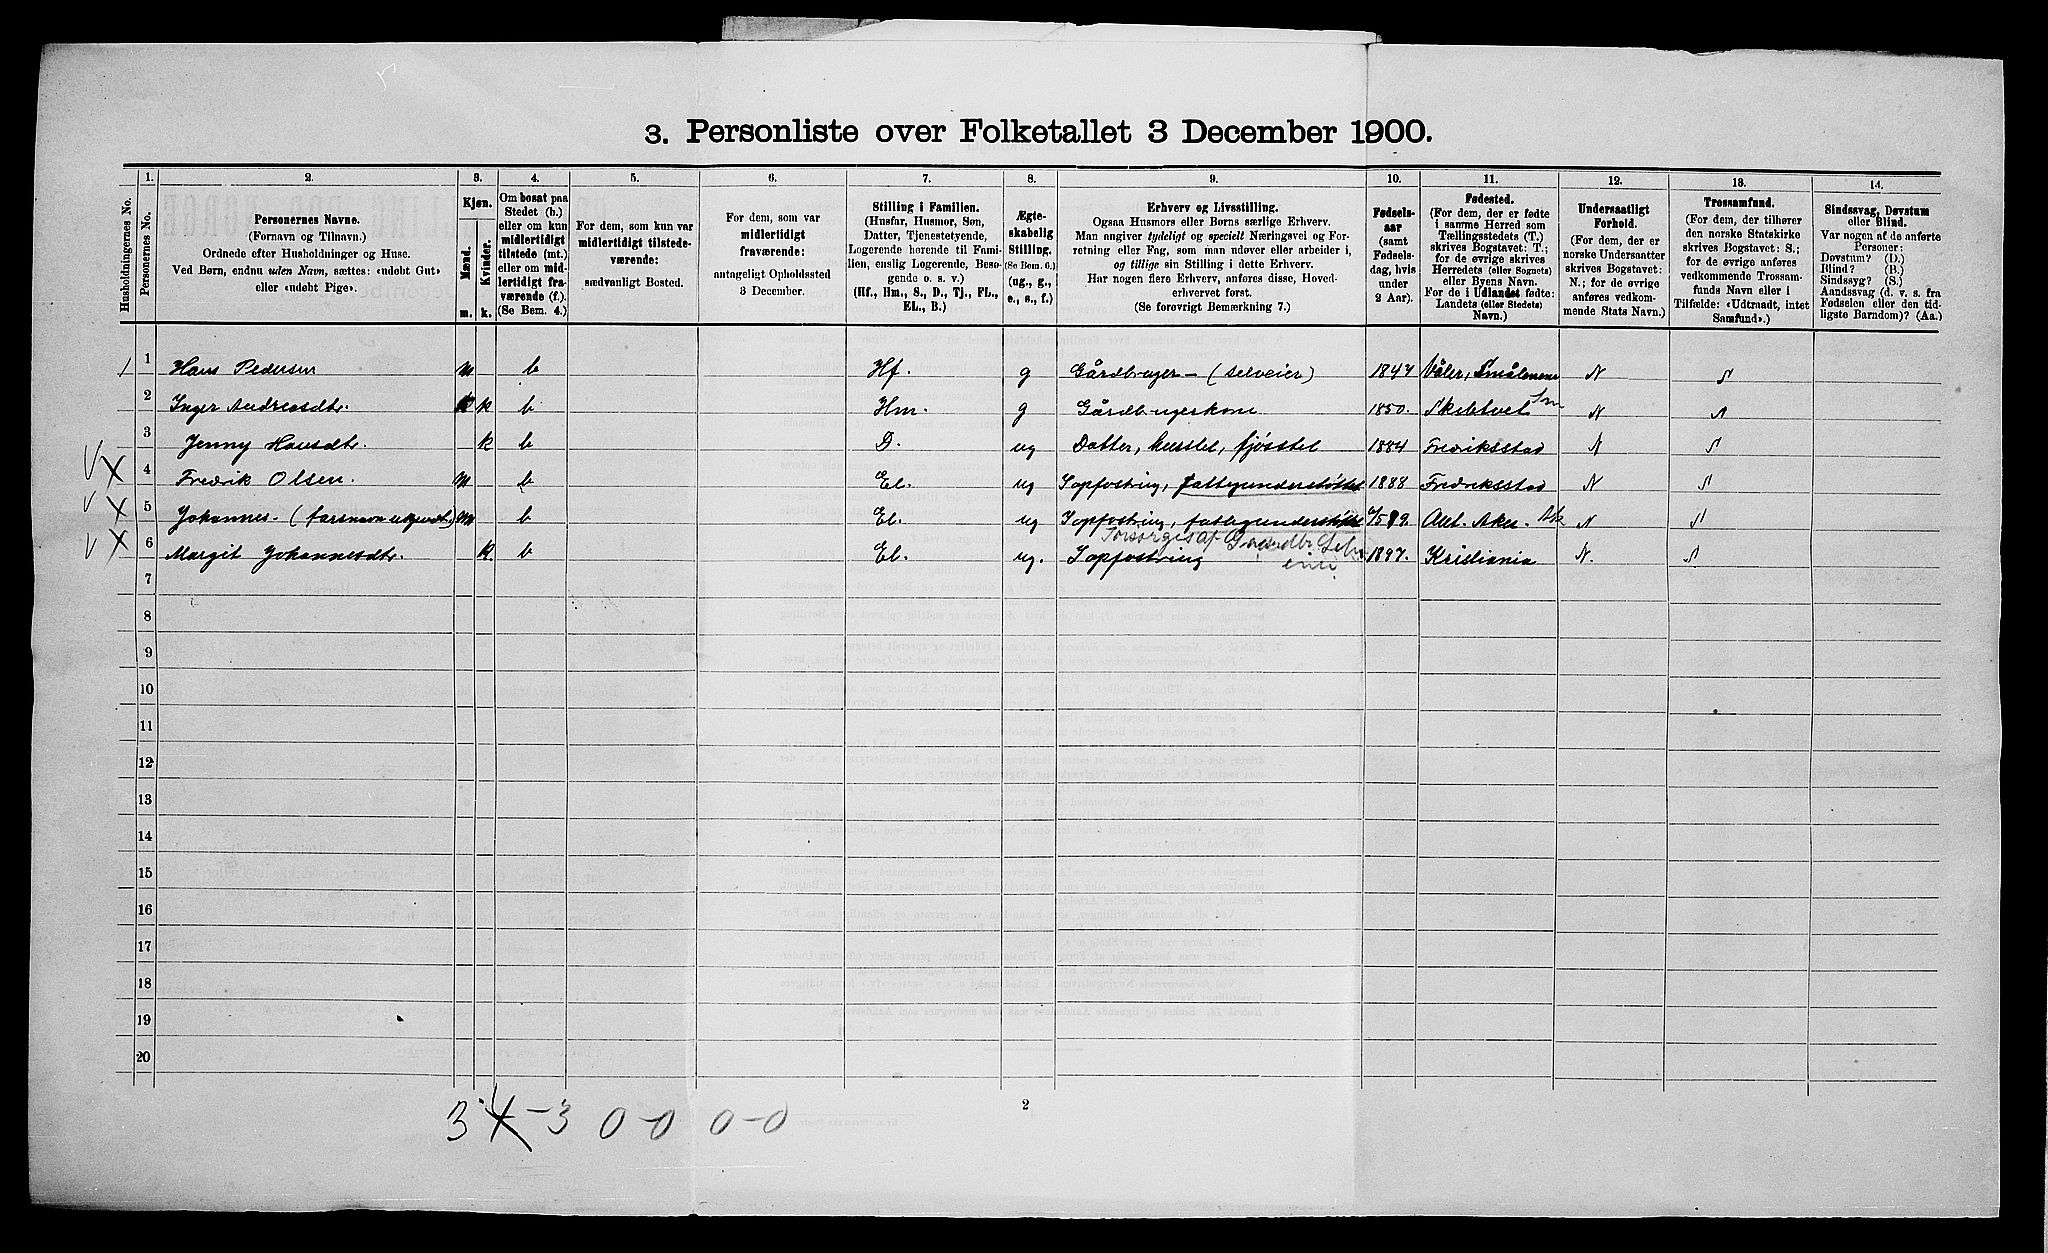 3. Personliste over Folketallet 3 December 1900.
Husholdningernes No.
1.
Personernes No.
2.
Personernes Navne.
(Fornavn og Tilnavn.)
Ordnede efter Husholdninger og Huse.
Ved Børn, endnu uden Navn, sættes: «udøbt Gut»
eller «udøbt Pige».
3.
Kjøn.
Mænd.
Kvinder.
m. k.
4.
Om bosat paa
Stedet (b.)
eller om kun
midlertidigt
tilstede (mt.)
eller om mid-
lertidigt fra-
værende (f.).
(Se Bem. 4.)
5.
For dem, som kun var
midlertidigt tilstede-
værende:
sædvanligt Bosted.
6.
For dem, som var
midlertidigt
fraværende:
antageligt Opholdssted
3 December.
7.
Stilling i Familien.
(Husfar, Husmor, Søn,
Datter, Tjenestetyende,
Logerende hørende til Fami-
lien, enslig Logerende, Besø-
gende o. s. v.)
(Hf., Hm., S., D., Tj., FL.,
EL., B.)
8.
Ægte-
skabelig
Stilling.
(Se Bem. 6.)
(ug., g.,
e., s., f.)
9.
Erhverv og Livsstilling.
Ogsaa Husmors eller Børns særlige Erhverv.
Man angiver tydeligt og specielt Næringsvei og For-
retning eller Fag, som man udøver eller arbeider i,
og tillige sin Stilling i dette Erhverv.
Har nogen flere Erhverv, anføres disse, Hoved-
erhvervet først.
(Se forøvrigt Bemærkning 7.)
10.
Fødsels-
aar
(samt
Fødsels-
dag, hvis
under
2 Aar).
11.
Fødested.
(For dem, der er fødte
i samme Herred som
Tællingsstedets (T.)
skrives Bogstavet: T.;
for de øvrige skrives
Herredets (eller Sognets)
eller Byens Navn.
For de i Udlandet fødte:
Landets (eller Stedets)
Navn.)
12.
Undersaatligt
Forhold.
(For dem, der er
norske Undersaatter
skrives Bogstavet:
N.; for de øvrige
anføres vedkom-
mende Stats Navn.)
13.
Trossamfund.
(For dem, der tilhører
den norske Statskirke
skrives Bogstavet: S.;
for de øvrige anføres
vedkommende Trossam-
funds Navn eller i
Tilfælde: «Udtraadt, intet
Samfund».)
14.
Sindssvag, Døvstum
eller Blind.
Var nogen af de anførte
Personer:
Døvstum? (D.)
Blind? (B.)
Sindssyg? (S.)
Aandssvag (d. v. s. fra
Fødselen eller den tid-
ligste Barndom)? (Aa.)
1 1 Hans Pedersen m b Hf. g Gårdbruger - (selveier) 1847 Våler, Smålenene N S
2 Inger Andreasdtr. k b Hm. g Gårdbrugerkone 1850. Skibtvet Sm N S
3 Jenny Hansdtr. k b D. ug Datter, husstel, fjøsstel 1884 Fredriksstad N S
V X 4 Fredrik Olsen. m b El. ug I opfostring, fattigunderstøttet 1888 Fredriksstad N S
V X 5 Johannes - m b El. ug I opfostring, fattigunderstøttet Aker N S
Forsørges af
V X 6 Margit Johannesdtr. k b El. ug. I opfostring 1897. Kristiania N. S
7
8
9
10
11
12
13
14
15
16
17
18
19
20
3 X - 3 0-0 0-0
2